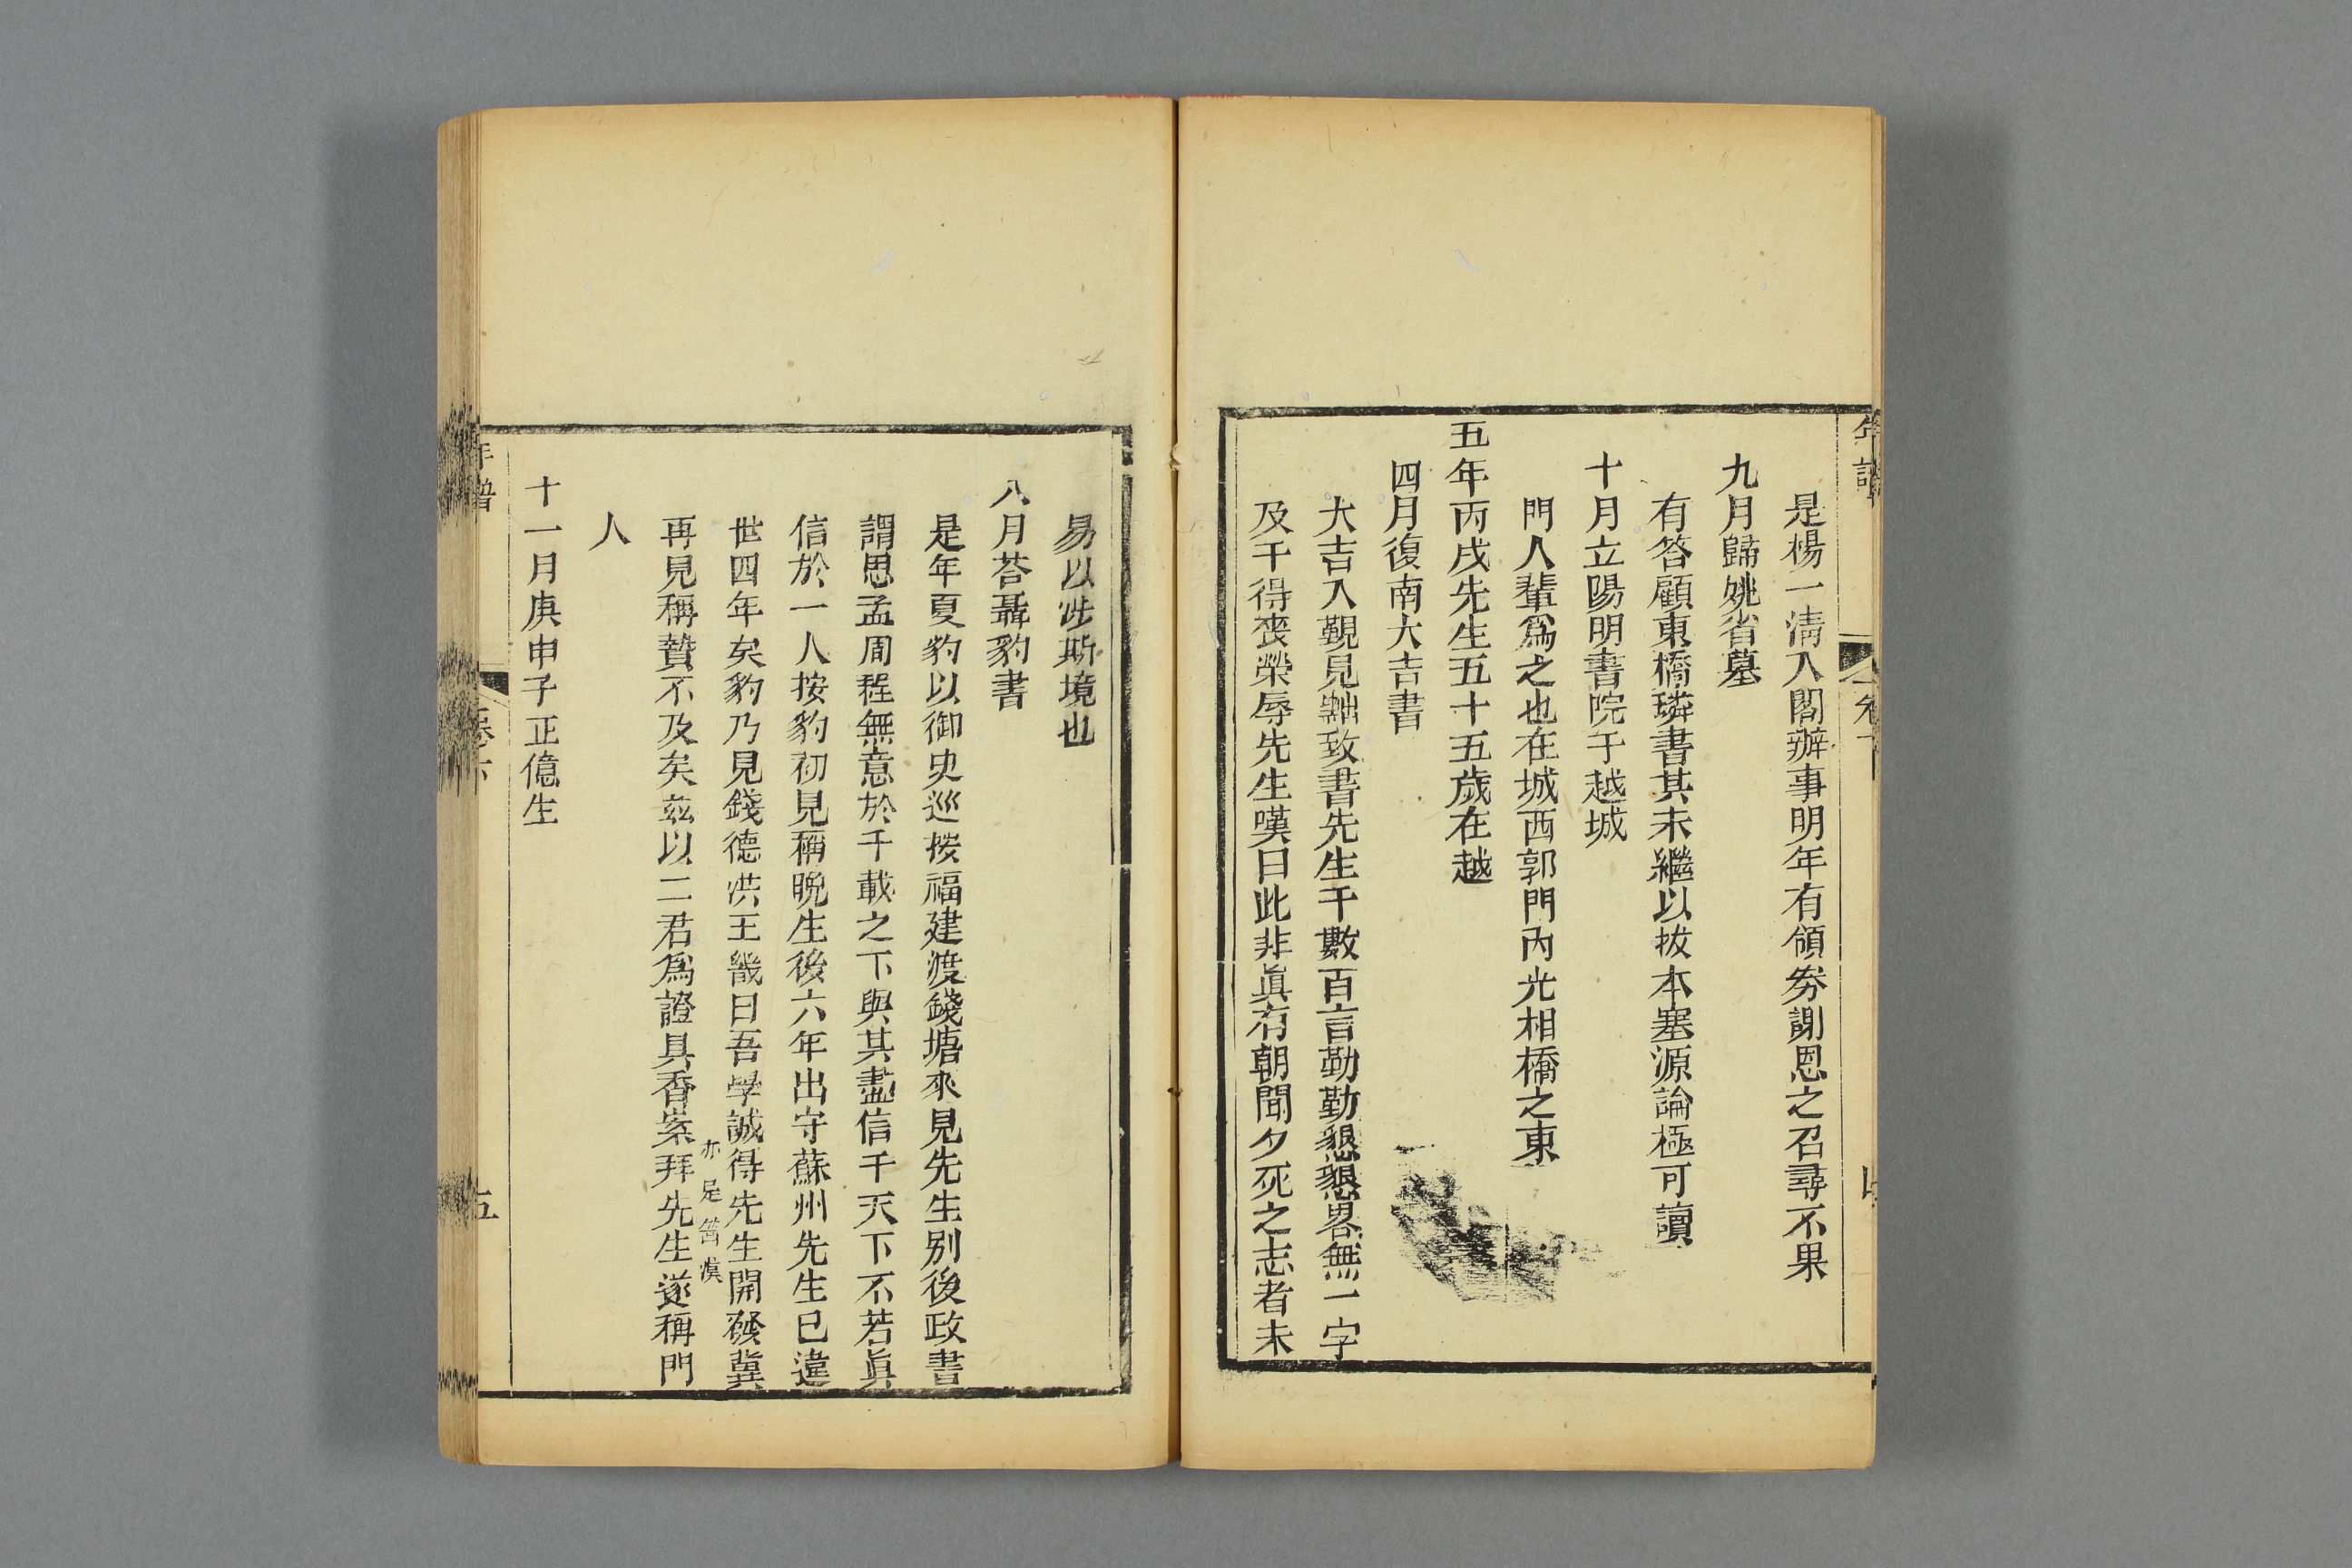 年譜
是楊一清入閣辦事明年有領劵謝恩之召尋不果
九月歸姚省墓
有答顧東橋璘書其末繼以拔本塞源論極可讀
十月立陽明書院于越城
門人輩爲之也在城西郭門內光相橋之東
五年丙戌先生五十五歲在越
四月復南大吉書
大吉入覲見黜致書先生千數百言勤勤懇懇畧無一字
及于得喪榮辱先生嘆曰此非眞有朝聞夕死之志者未
易以涉斯境也
八月荅聶豹書
是年夏豹以御史巡按福建渡錢塘來見先生别後政書
謂思孟周程無意於千載之下與其盡信千天下不若眞
信於一人按豹初見稱晚生後六年出守蘇州先生已違
世四年矣豹乃見錢德洪王畿曰吾學誠得先生開發冀
再見稱贄不及矣兹以二君爲證具香案拜先生遂稱門
亦足
人
十一月庚申子正億生
年譜
五